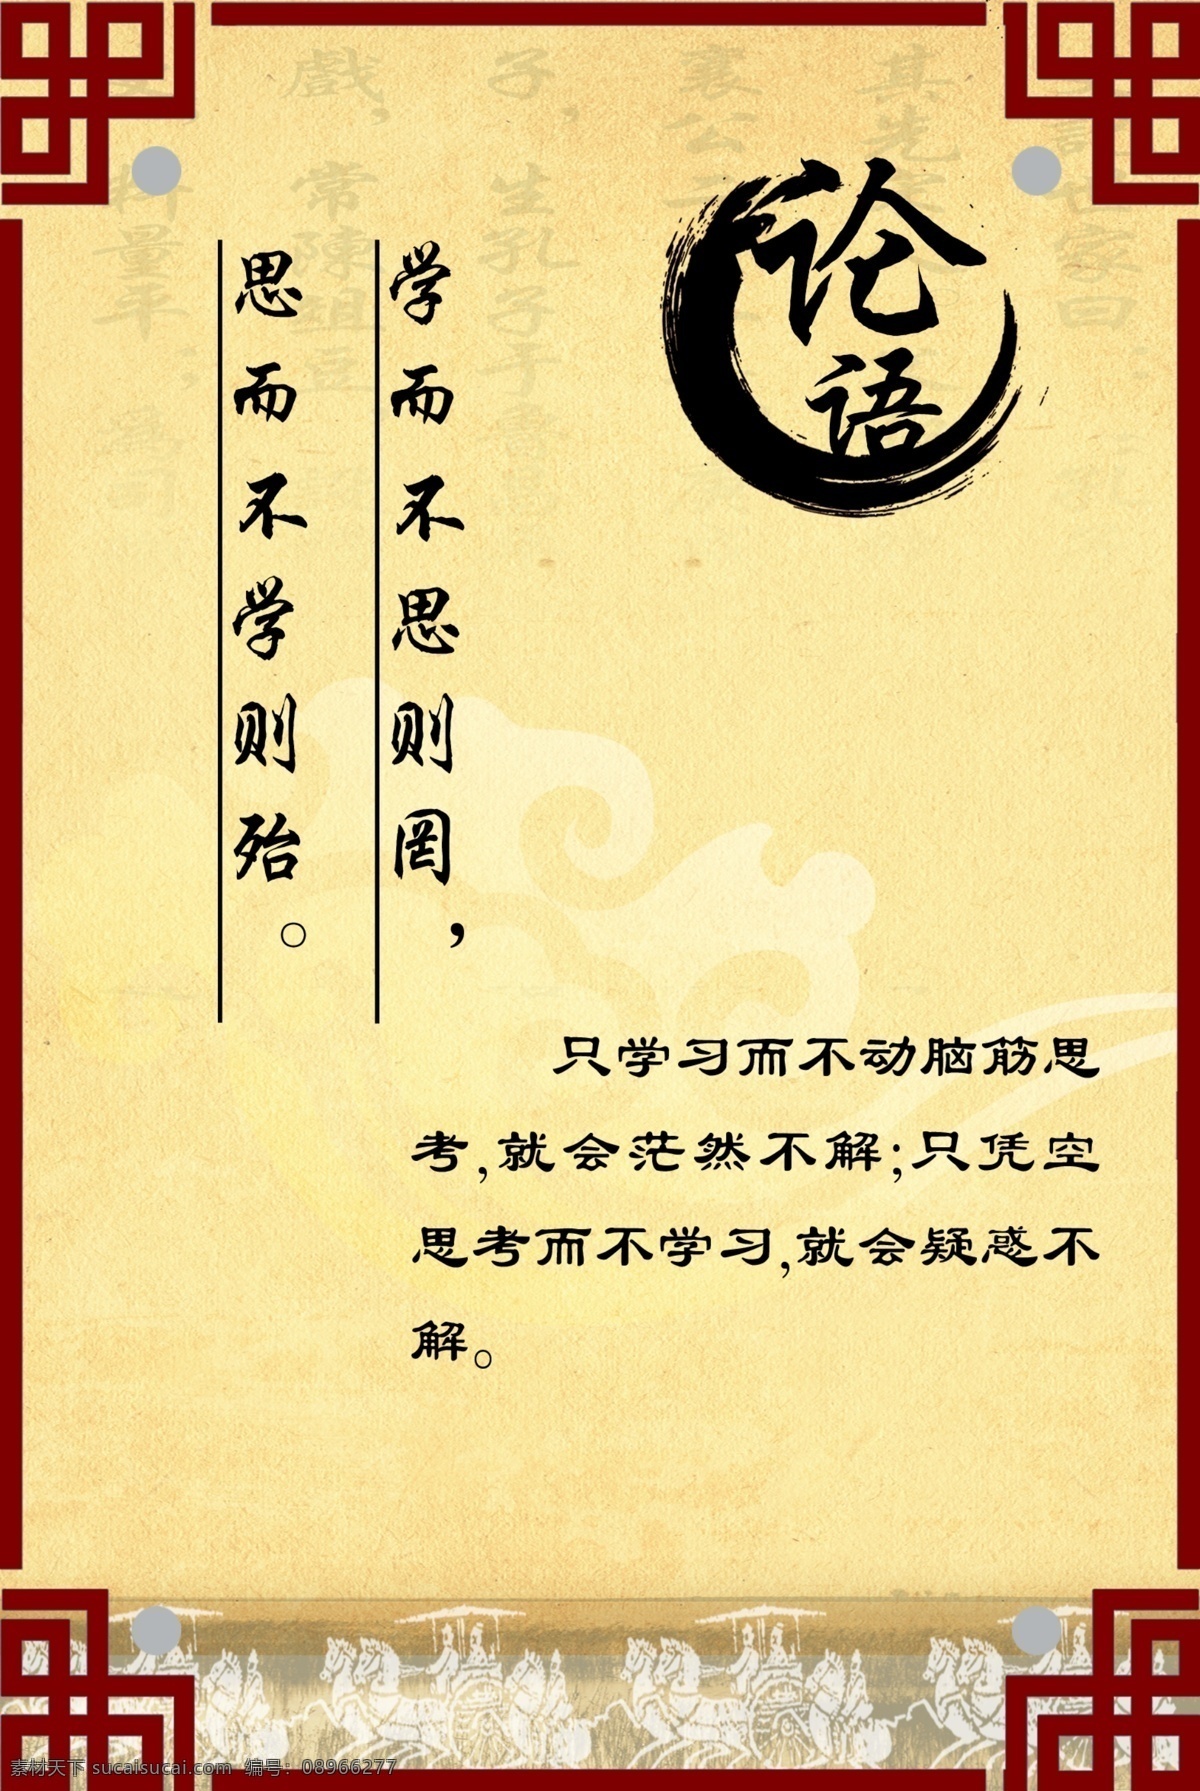 论语
学而不思则罔，
思而不学则殆。
只学习而不动脑筋思
考,就会茫然不解;只凭空
思考而不学习,就会疑惑不
解。
其先
襄公
子，生孔子
戲，常陳俎豆
料量平；
素材天下 sucaisucai.com 编号：08966277